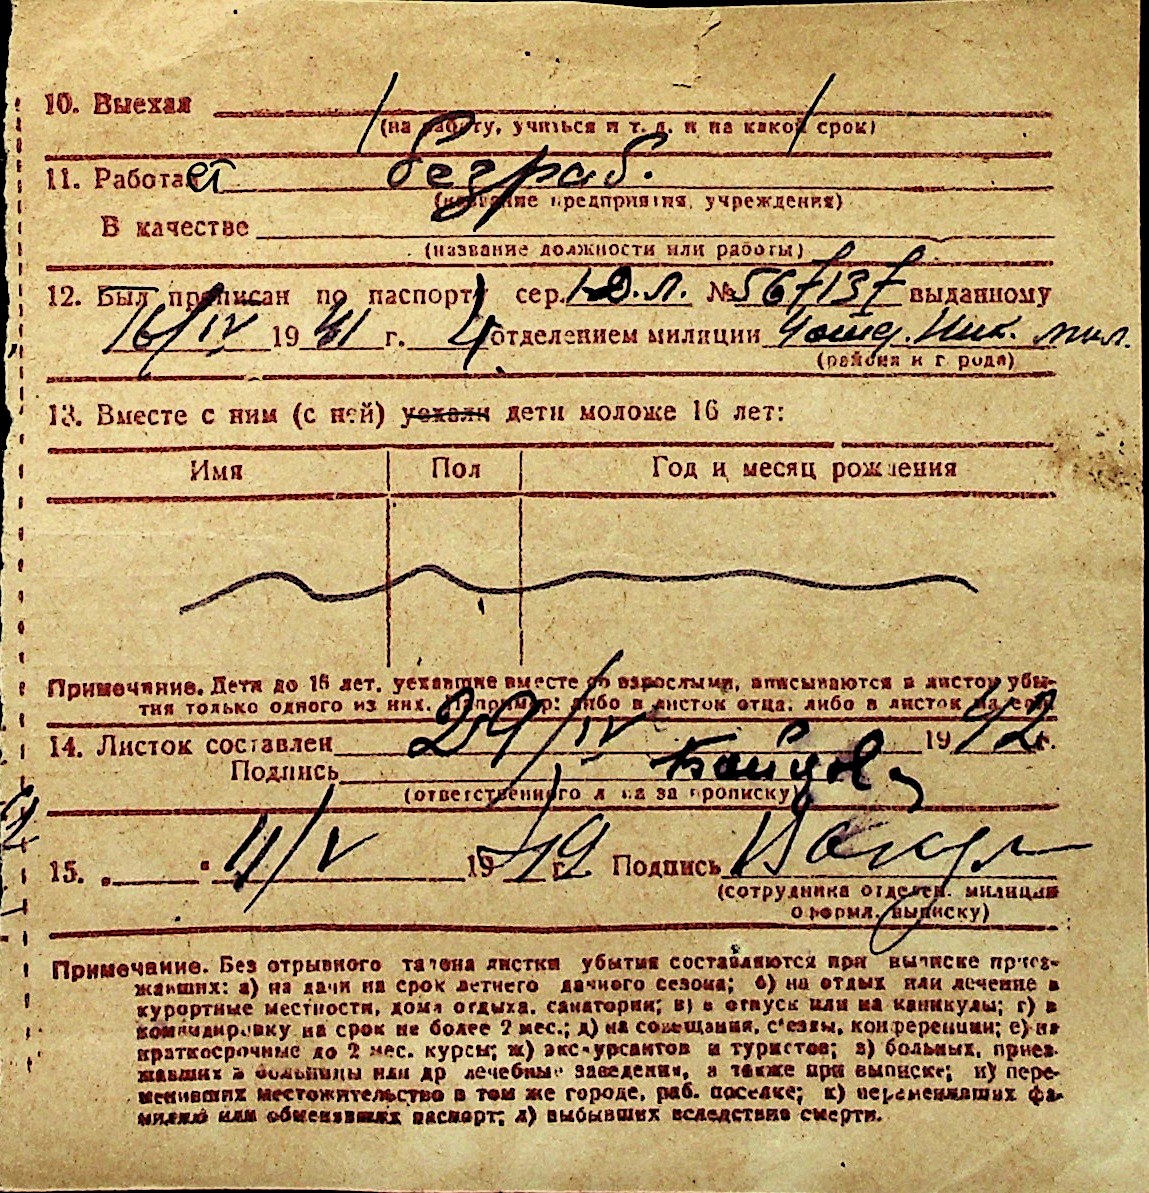 10. Выехал
(на работу, учиться и т. д. и на какой срок)
11. Работает безраб.
(название предприятия, учреждения)
В качестве
(название должности или работы)
12. Был прописан по паспорту сер. I-Д.Л. № 567137 выданному
16/IV 1941 г. 4 отделением милиции мил.
(района и города)
13. Вместе с ним (с ней) уехали дети моложе 16 лет:
Имя Пол Год и месяц рождения
Примечание. Дети до 16 лет, уехавшие вместе со взрослыми, вписываются в листок убы-
тия только одного из них. Например: либо в листок отца, либо в листок матери.
14. Листок составлен 29/IV 1942 г.
Подпись
(ответственного лица за прописку)
15. " 11/V 19 г. Подпись
(сотрудника отделен. милиции
оформл. выписку)
Примечание. Без отрывного талона листки убытия составляются при выписке приез-
жавших: а) на дачи на срок летнего дачного сезона; б) на отдых или лечение в
курортные местности, дома отдыха, санатории; в) в отпуск или на каникулы; г) в
командировку на срок не более 2 мес.; д) на совещания, съезды, конференции; е) на
краткосрочные до 2 мес. курсы; ж) экскурсантов и туристов; з) больных, приез-
жавших в больницы или др лечебные заведения, а также при выписке; и) пере-
менивших местожительство в том же городе, раб. поселке; к) переменивших фа-
милию или обменявших паспорт; л) выбывших вследствие смерти.